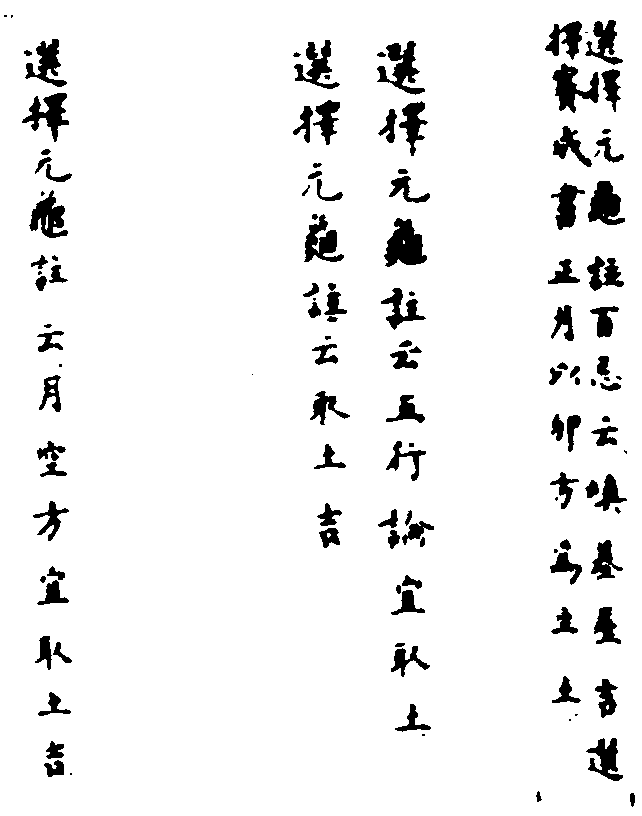 選擇元龜註百忌云填基屋吉選
擇賽成書正月以卯方為土土
選擇元龜註云五行論宜取土
選擇元龜註云取土吉
選擇元龜註云月空方宜取土吉